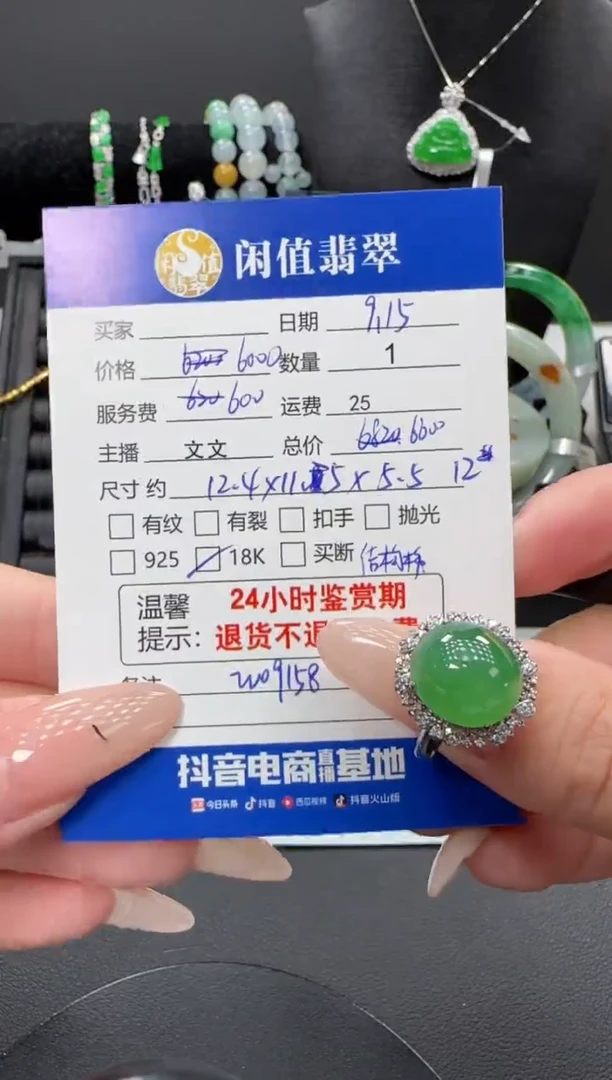 闲值翡翠
买家 日期 9.15
价格 6000 数量 1
服务费 600 运费 25
主播 文文 总价 6820 6600
尺寸 约 12.4×11. 5×5.5 12#
有纹 有裂 扣手 抛光
925 18K 买断 结构棉
温馨 24小时鉴赏期
提示: 退货不退 费
备注 9158
抖音电商直播基地
今日头条 抖音 西瓜视频 抖音火山版